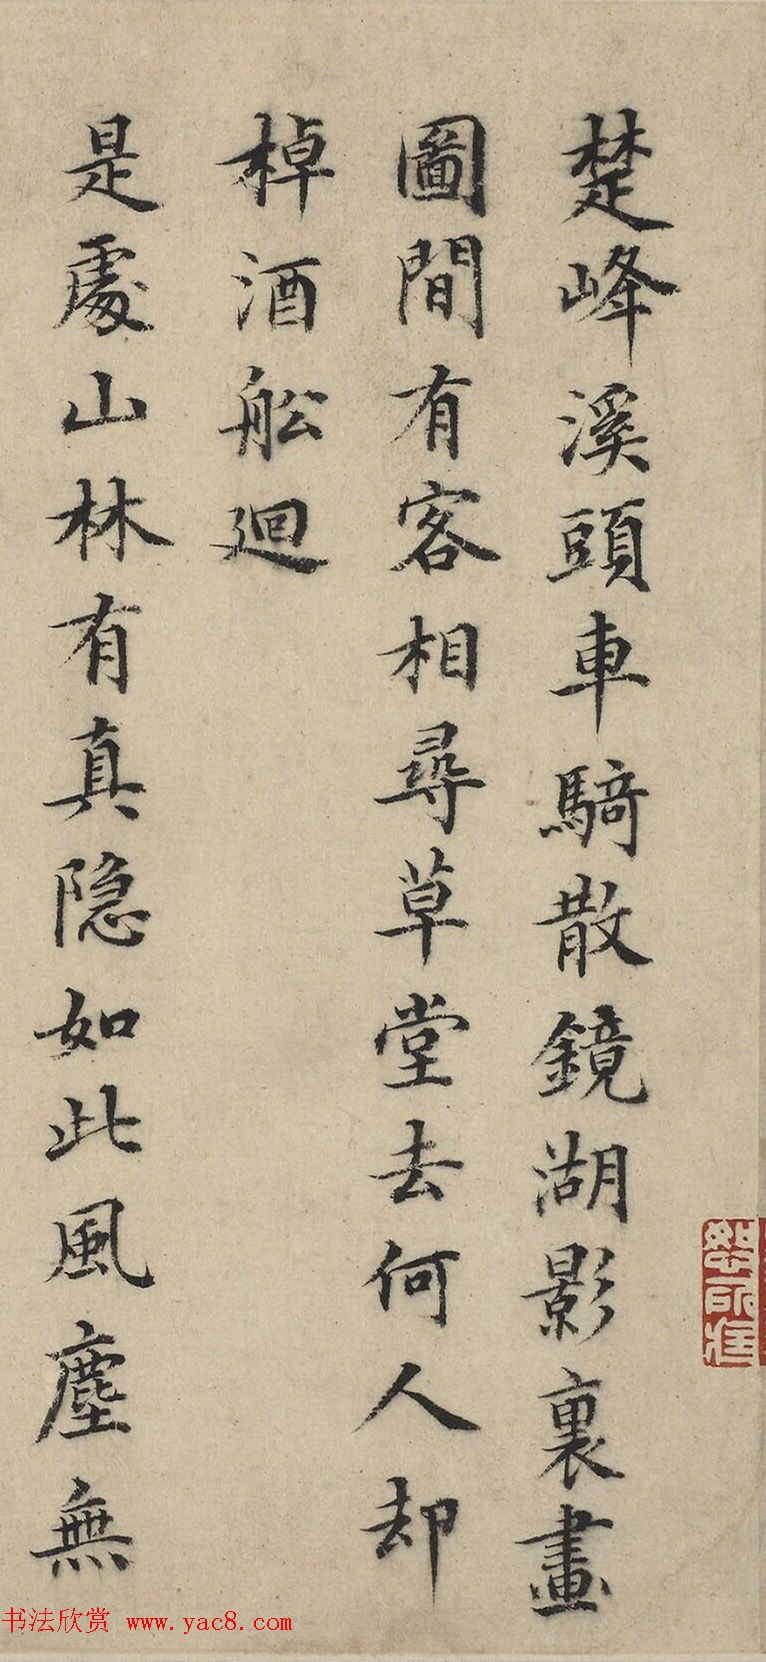 楚峰溪頭車騎散鏡湖影裏畫
圖間有客相尋草堂去何人却
棹酒舩廻
是處山林有真隐如此風塵無
书法欣赏 www.yac8.com